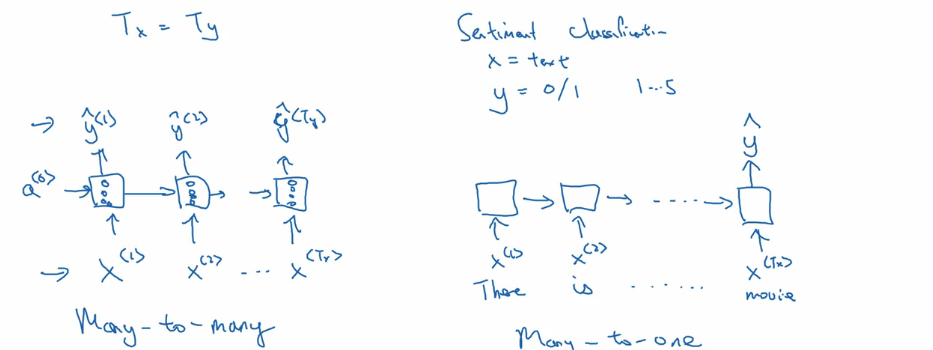 Tx = Ty
ŷ<1> ŷ<2> ŷ<Ty>
a<0>
x<1> x<2> ... x<Tx>
Many-to-many
Sentiment classification
x = text
y = 0/1 1...5
ŷ
x<1> x<2> x<Tx>
There is ...... movie
Many-to-one